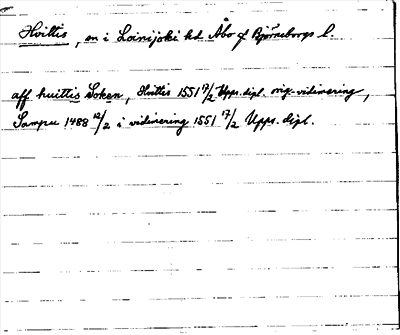 Hvittis, sn i Loimijoki hd Åbo o Björneborgs l.
aff huittis Soken, Hvittis 1551 17/2 Upps. dipl. orig. vidimering,
Sampu 1488 12/2 i vidimering 1551 17/2 Upps. dipl.